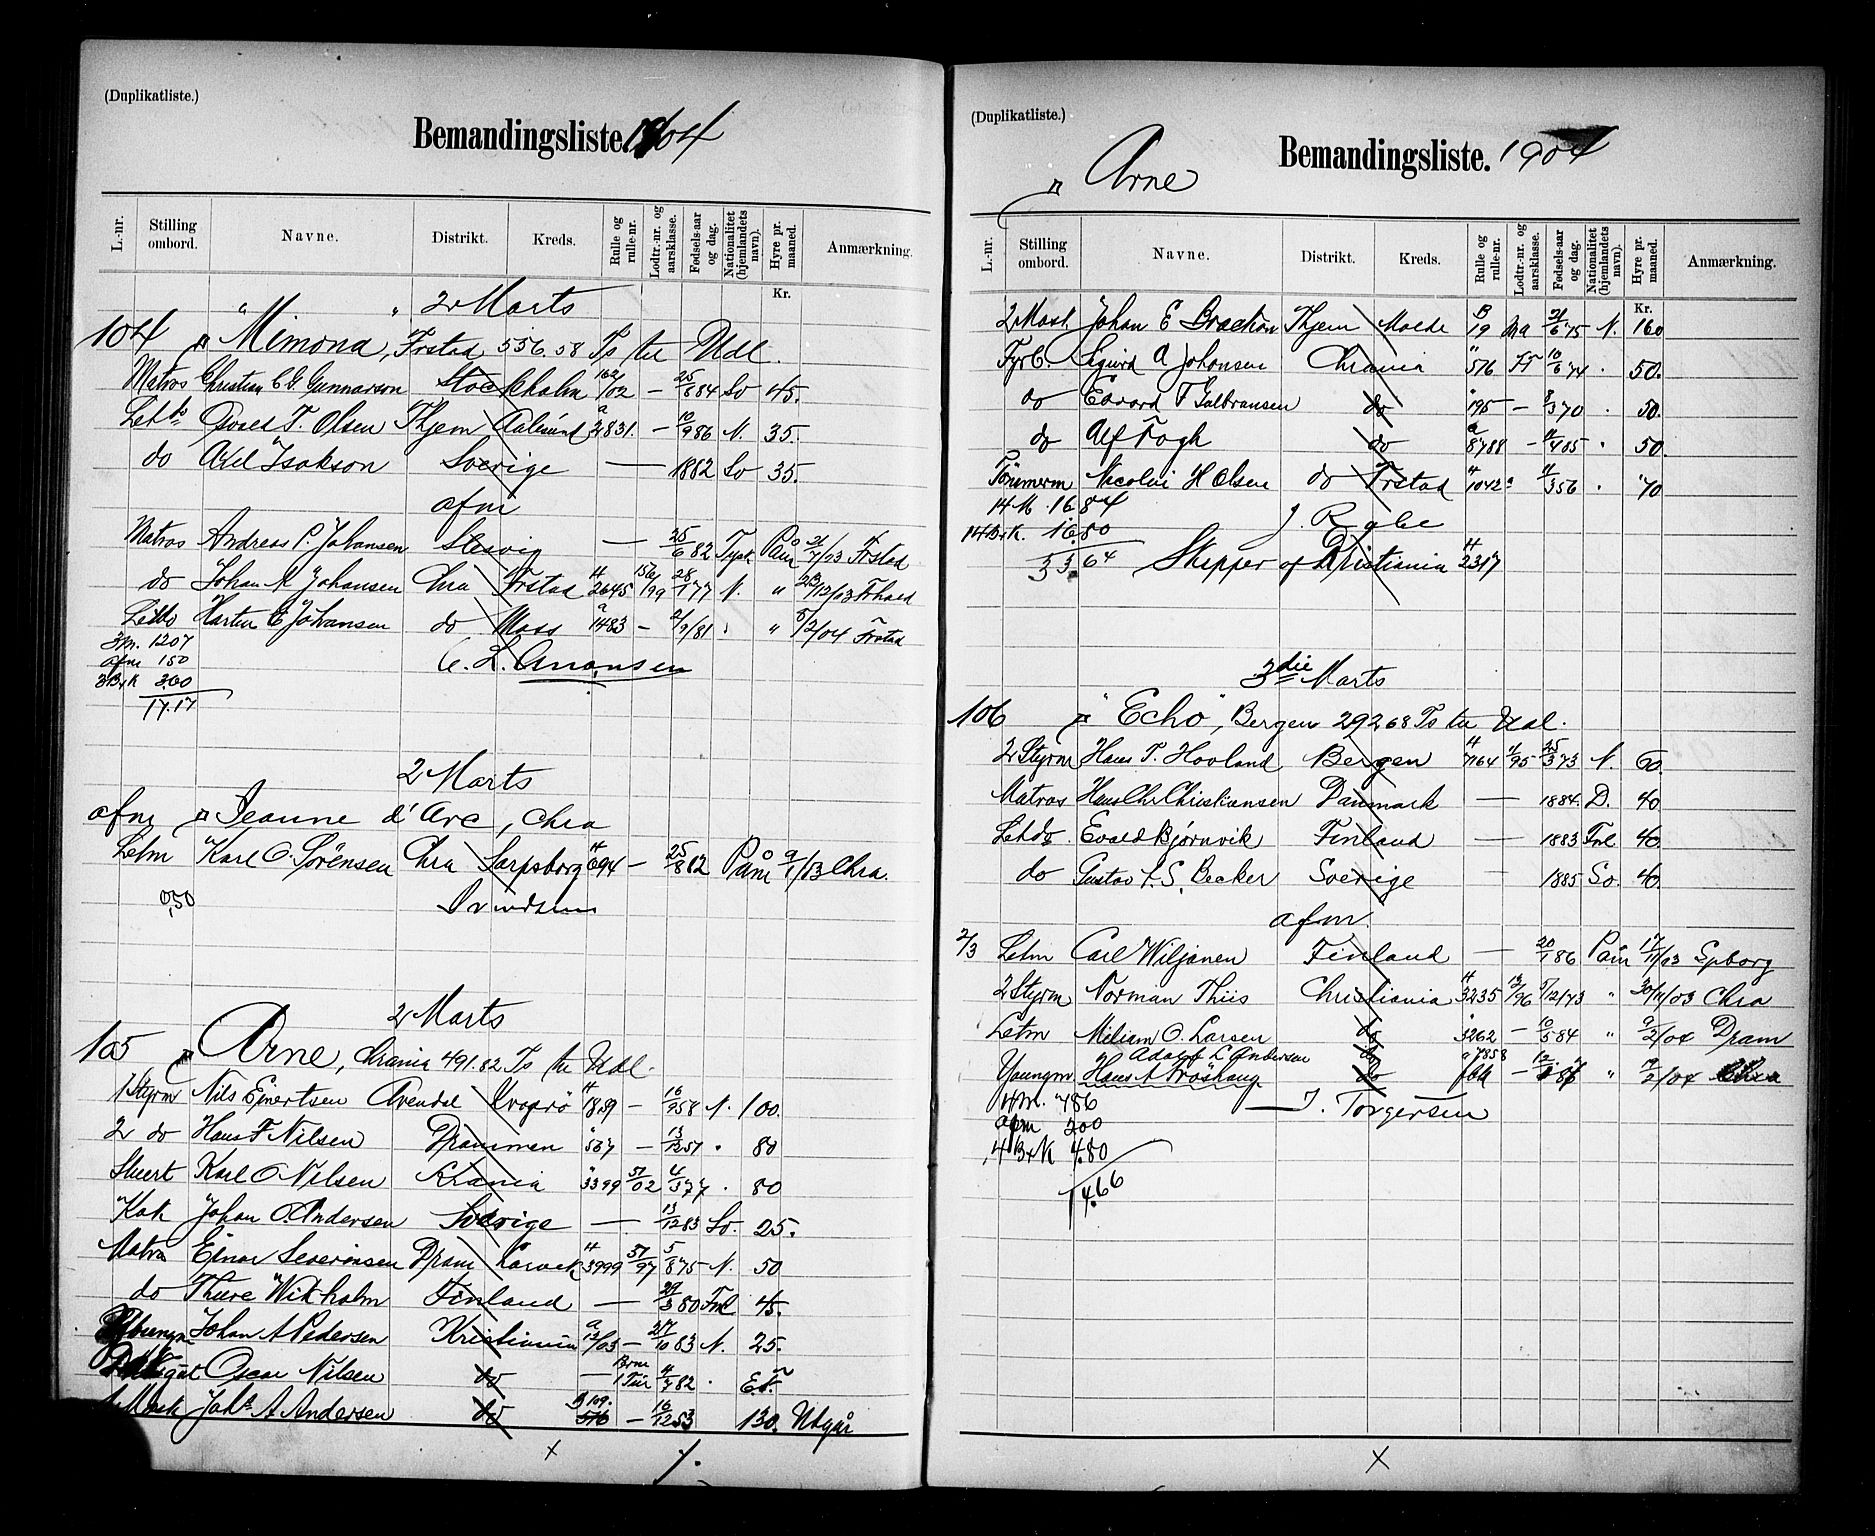 (Duplikatliste.)
Bemandingsliste. 1904
L.-nr. Stilling ombord. Navne. Distrikt. Kreds. Rulle og rulle-nr. Lodtr.-nr. og aarsklasse. Fødsels-aar og dag. Nationalitet (hjemlandets navn). Hyre pr. maaned. Anmærkning.
Kr.
2 Marts
104 "Mimona", Frstad 556.58 Ts til Udl.
Matros Christian C G Gunnarson Stockholm 162/02 — 25/8 84 Sv 45.
Letm Oskar T. Olsen Thjem Aalesund a 2831. — 10/9 86 N. 35.
do Axel Isakson Sverige — 1882 Sv 35.
afm
Matros Andreas P. Johansen Slesvig — 25/6 82 Tysk Påm 21/7/03 Frstad
do Johan M Johansen Chra Frstad 2645 28/1 77 N. " 23/12/03 Frhald
Letm Martin E Johansen do Moss a 1483 — 2/9/81 . " 5/2/04 Frstad
3 M. 1207
afm 150
3 B&K 3.60
17.17
2 Marts
afm Jeanne d'Arc, Chra
Letm Karl O. Sörensen Chra Sarpsborg 694 — 25/8 82 Påm 9/1/03 Chra.
0,50
2 Marts
105 Arne, Chrania 491.82 Ts til Udl.
1 Styrm Nils Ejnertsen Arendal 1859 — 16/9 58 N. 100.
2 do Hans F Nilsen Drammen 567 — 13/12 57 . 80
Stuert Karl O Nilsen Krania 3399 51/02 4/3 77 . 80
Kok Johan O. Andersen Sverige — 13/12 83 Sv. 25.
Matros Ejnar Severinsen Dram Larvik 3999 51/97 5/8 75 N. 50
do Thure Wikholm Finland — 29/3 80 Fnl 45.
Youngm Johan A Pedersen Kristiania a 13/03 — 27/10 83 N. 25.
Oscar Nilsen do — 1 Tur 4/7 82 .
1 Mask Johs A Andersen do B 109. 516 — 16/12 53 130. Utgår
(Duplikatliste.)
Bemandingsliste. 1904
Arne
L.-nr. Stilling ombord. Navne. Distrikt. Kreds. Rulle og rulle-nr. Lodtr.-nr. og aarsklasse. Fødsels-aar og dag. Nationalitet (hjemlandets navn). Hyre pr. maaned. Anmærkning.
Kr.
2 Mask. Johan E Thjem Molde B 19 Ma 21/6 75 N. 160
Fyrb. Sigurd A Johansen Chrania 576 10/6 74 . 50.
do Edvard F Gulbransen do 195 — 8/3 70 . 50.
do Alf Fogh do a 8788 — 11/4 85 . 50.
Tömmerm Nicolai H Olsen do Frstad 1042 11/3 56 . 70
14 M. 16.84
14 B&K. 16.80
33.64
J. Rabe
Skipper af Kristiania 2317
3die Marts
106 "Echo", Bergen 292.68 Ts til Udl.
2 Styrm Hans T. Hovland Bergen 7164 11/95 25/3 73 N. 60.
Matros Hans Chr Christiansen Danmark — 1884. D. 40
Letm. Evald Bjørnvik Finland — 1883 Fnl 40.
do Gustav S. Becker Sverige — 1885 Sv. 40.
afm.
2/3 Letm Carl Wiljanen Finland — 20/1 86 Påm 17/11/03 Spborg
2 Styrm Norman Thiis Christiania 3235 13/96 5/12/73 " 30/11/03 Chra
Letm Miliam O. Larsen do 3262 — 10/5 84 " 9/2/04 Dram
Adolf L Andersen do a 7858
Youngm Hans A Tröshaug do — " 9/2/04
4 M. 786
afm 200
4 B&K 4.80
14.66
J. Torgersen